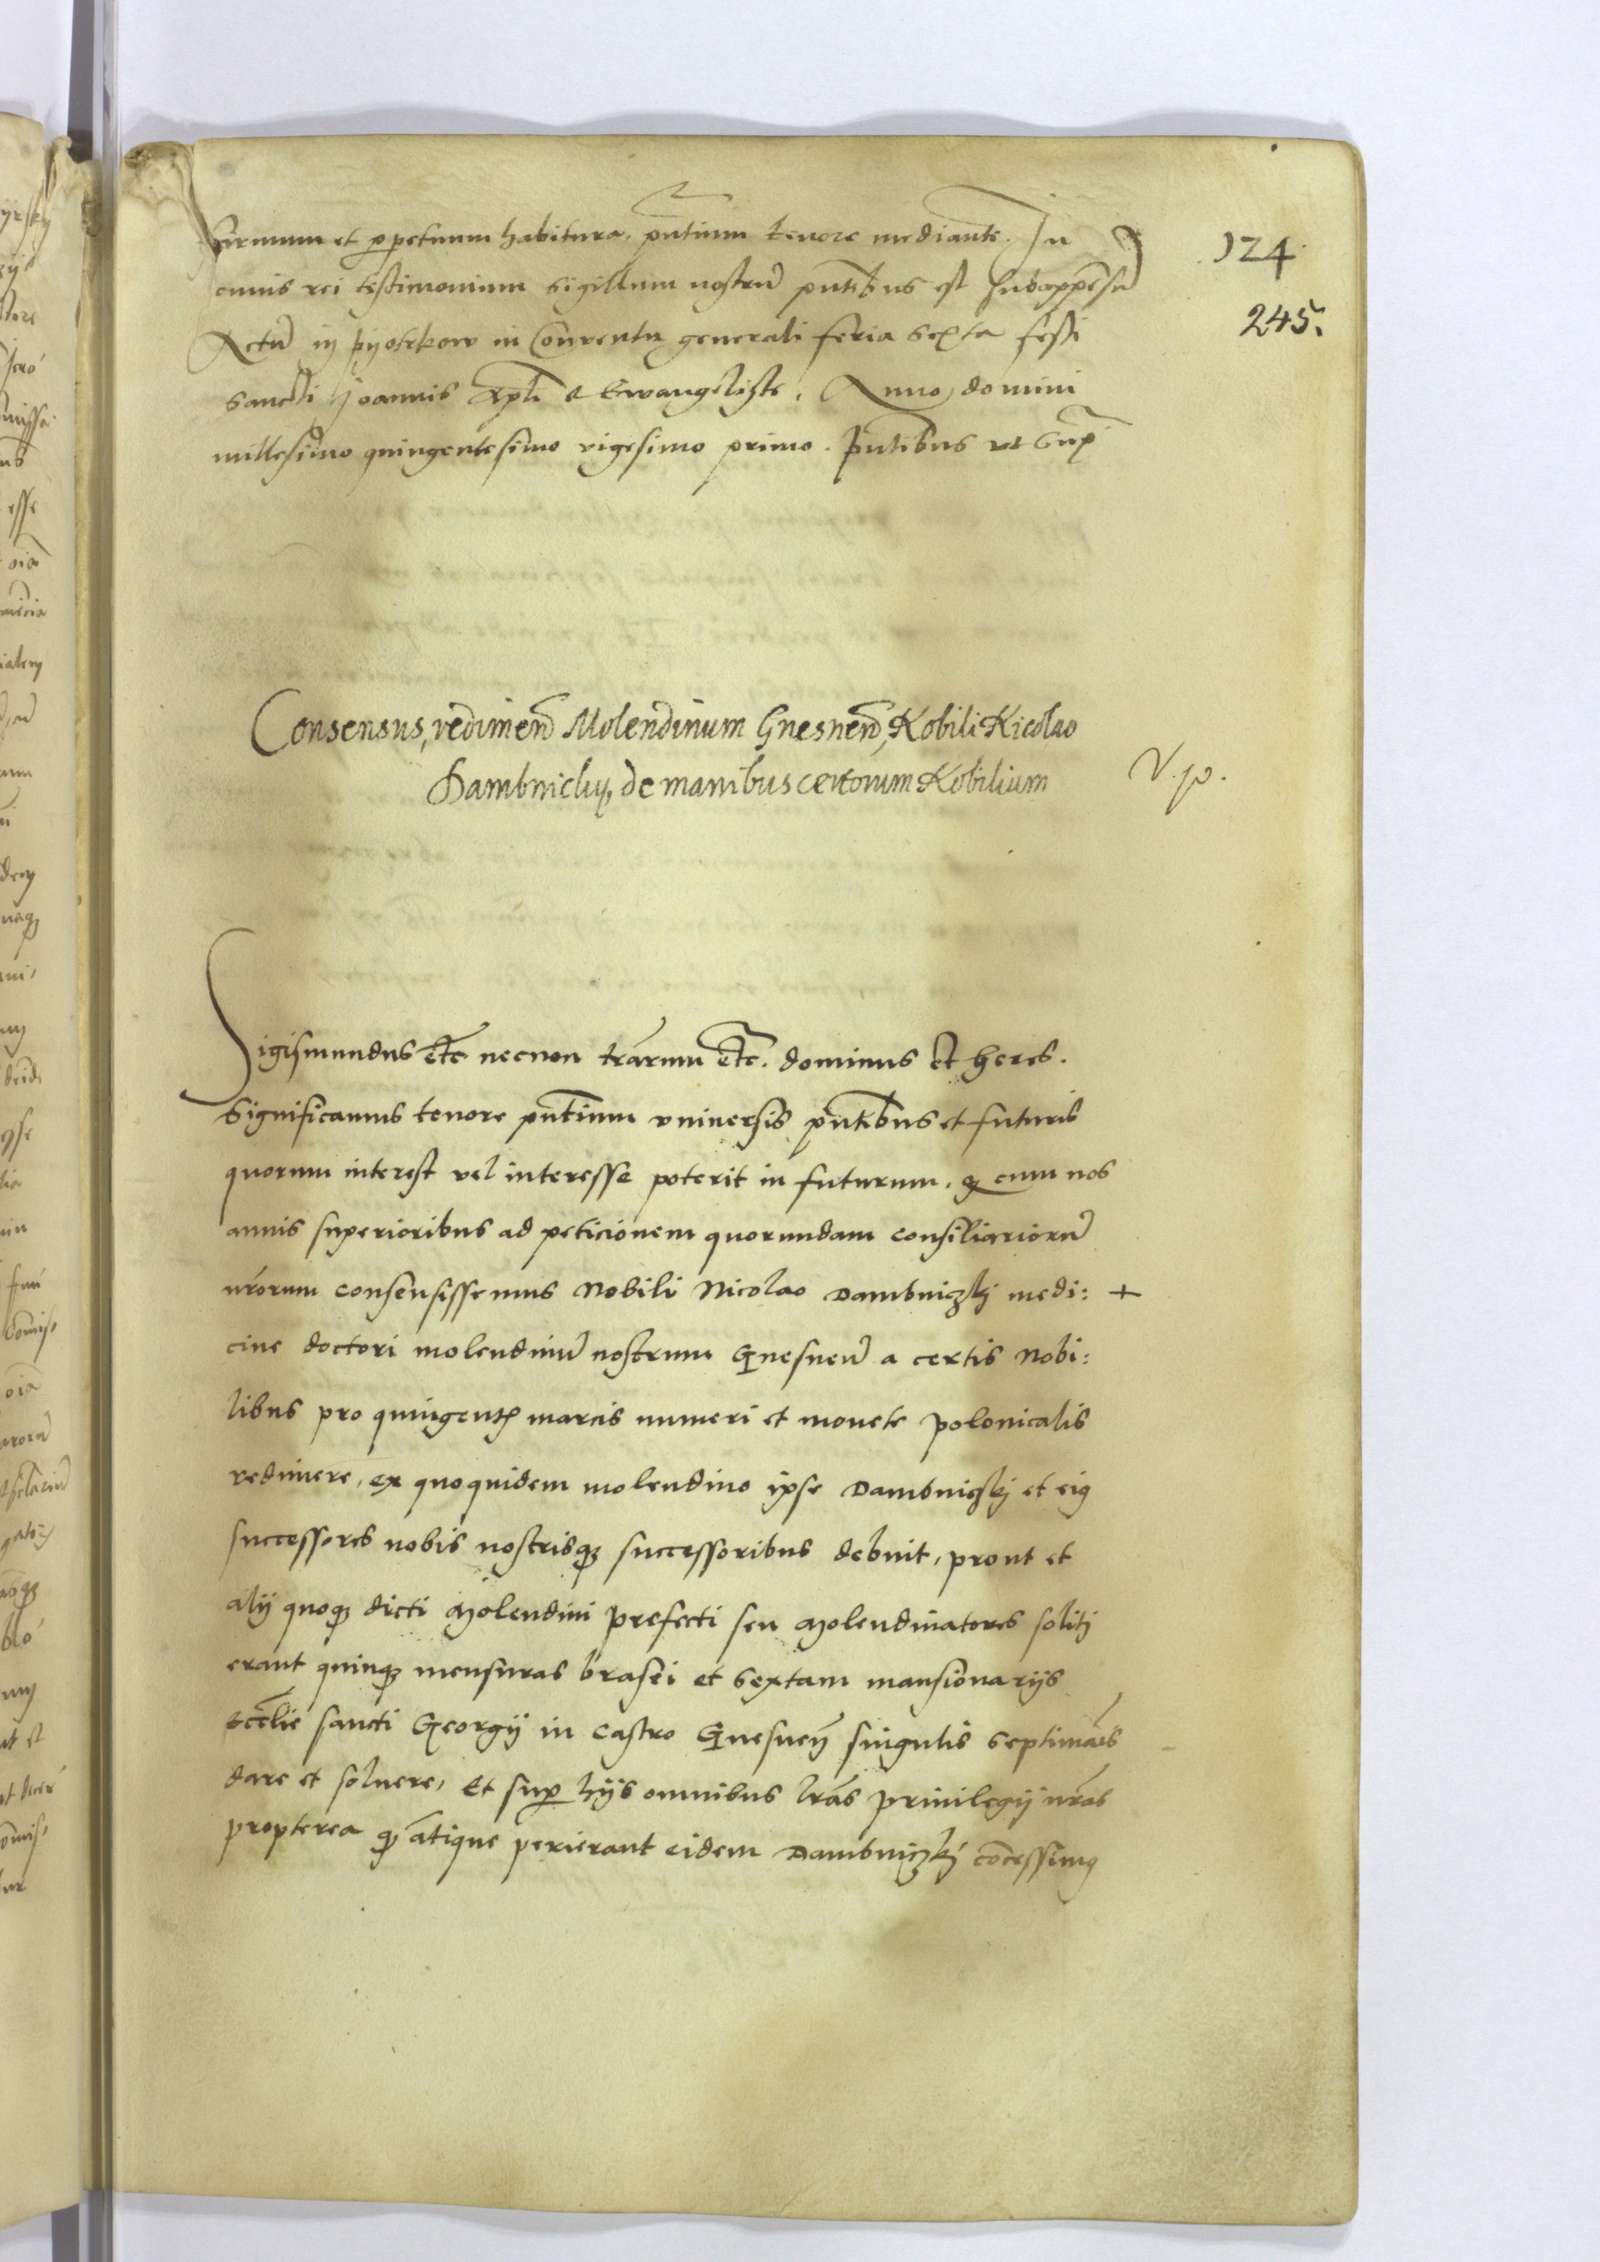 firmum et perpetuum habitura, pntium tenore mediante. In
cuius rei testimonium sigillum nostrũ pntibus est subappensũ
Actũ in pyotrkow in Conventu generali feria sexta festi
sancti Joannis Apli et Ewangeliste, Anno domini
millesimo quingentesimo vigesimo primo. Pntibus ut supra
124
245.
Consensus, redimenð Molendinum Gnesnenð, Nobili Nicolao
Dambniczky, de manibus certorum Nobilium
V. p.
Sigismundus etc necnon trarum etc. dominus et heres.
Significamus tenore pntium universis pntibus et futuris
quorum interest vel interesse poterit in futurum, q cum nos
annis superioribus ad peticionem quorundam consiliariorũ
nrorum consensissemus Nobili Nicolao Dambniczkj medi: +
cine doctori molendinũ nostrum Gnesnen a certis Nobi:
libus pro quingentis marcis numeri et monete polonicalis
redimere, ex quoquidem molendino ipse Dambniczkj et eius
successores nobis nostrisque successoribus debuit, prout et
alij quoque dicti Molendini prefecti seu Molendinatores solitj
erant quinque mensuras brasei et sextam mansionarijs
ecclie sancti Georgij in castro Gnesnen singulis septimais
dare et solvere, Et super hijs omnibus lras privilegij nras
propterea q antique perierant eidem Dambniczkj concessimus